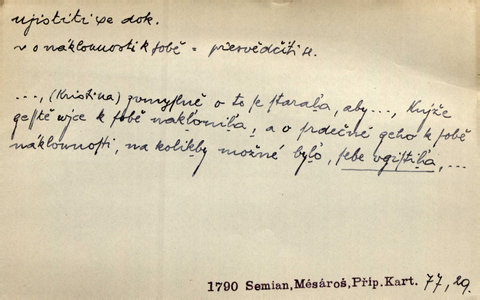 ujistiti se dok.
v o náklonnosti k sobě = přesvědčiti se.
..., (Kristina) zumyslně o to se starala, aby..., Knjže
geſstě wjce k sobě naklonila, a o srdečné geho k sobě
náklonnosti, na kolikby možné bylo, sebe vgistila, ...
1790 Semian, Mésároš, Příp. Kart. 77, 29.